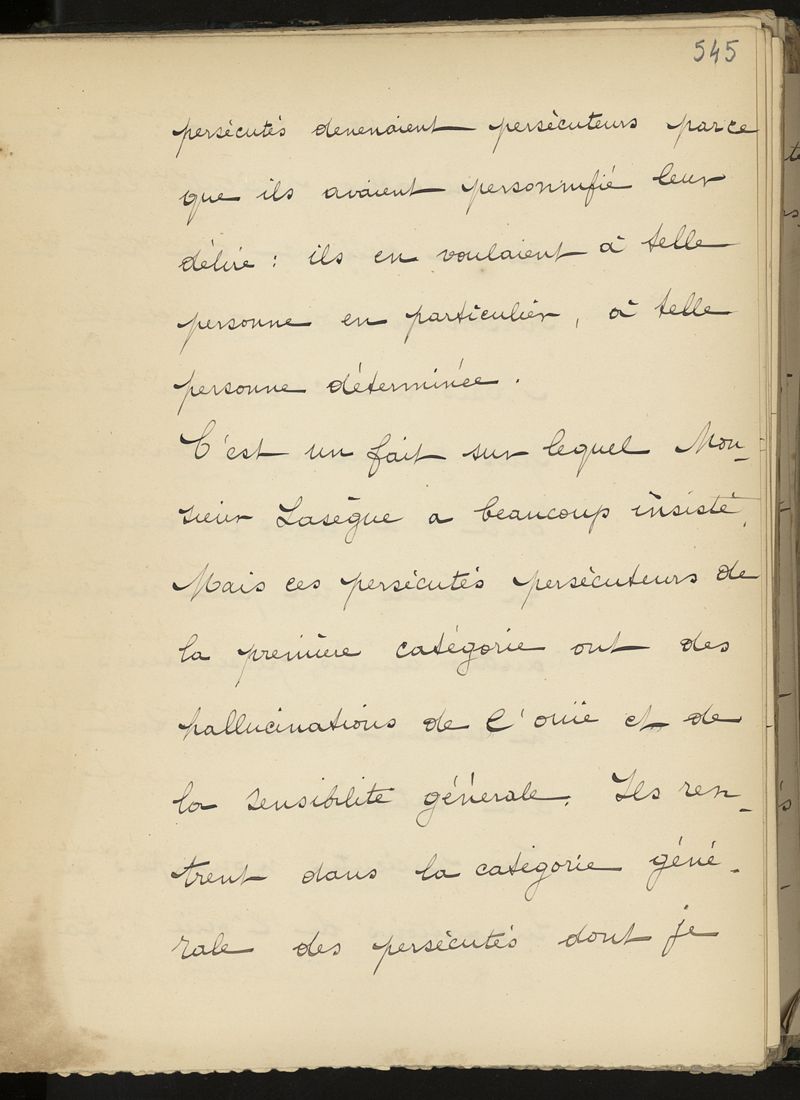 545
persécutés devenaient persécuteurs parce
que ils avaient personnifié leur
délire : ils en voulaient à telle
personne en particulier, à telle
personne déterminée.
C'est un fait sur lequel Mon-
sieur Lasègue a beaucoup insisté.
Mais ces persécutés persécuteurs de
la première catégorie ont des
hallucinations de l'ouïe et de
la sensibilité générale. Ils ren-
trent dans la catégorie géné-
rale des persécutés dont je